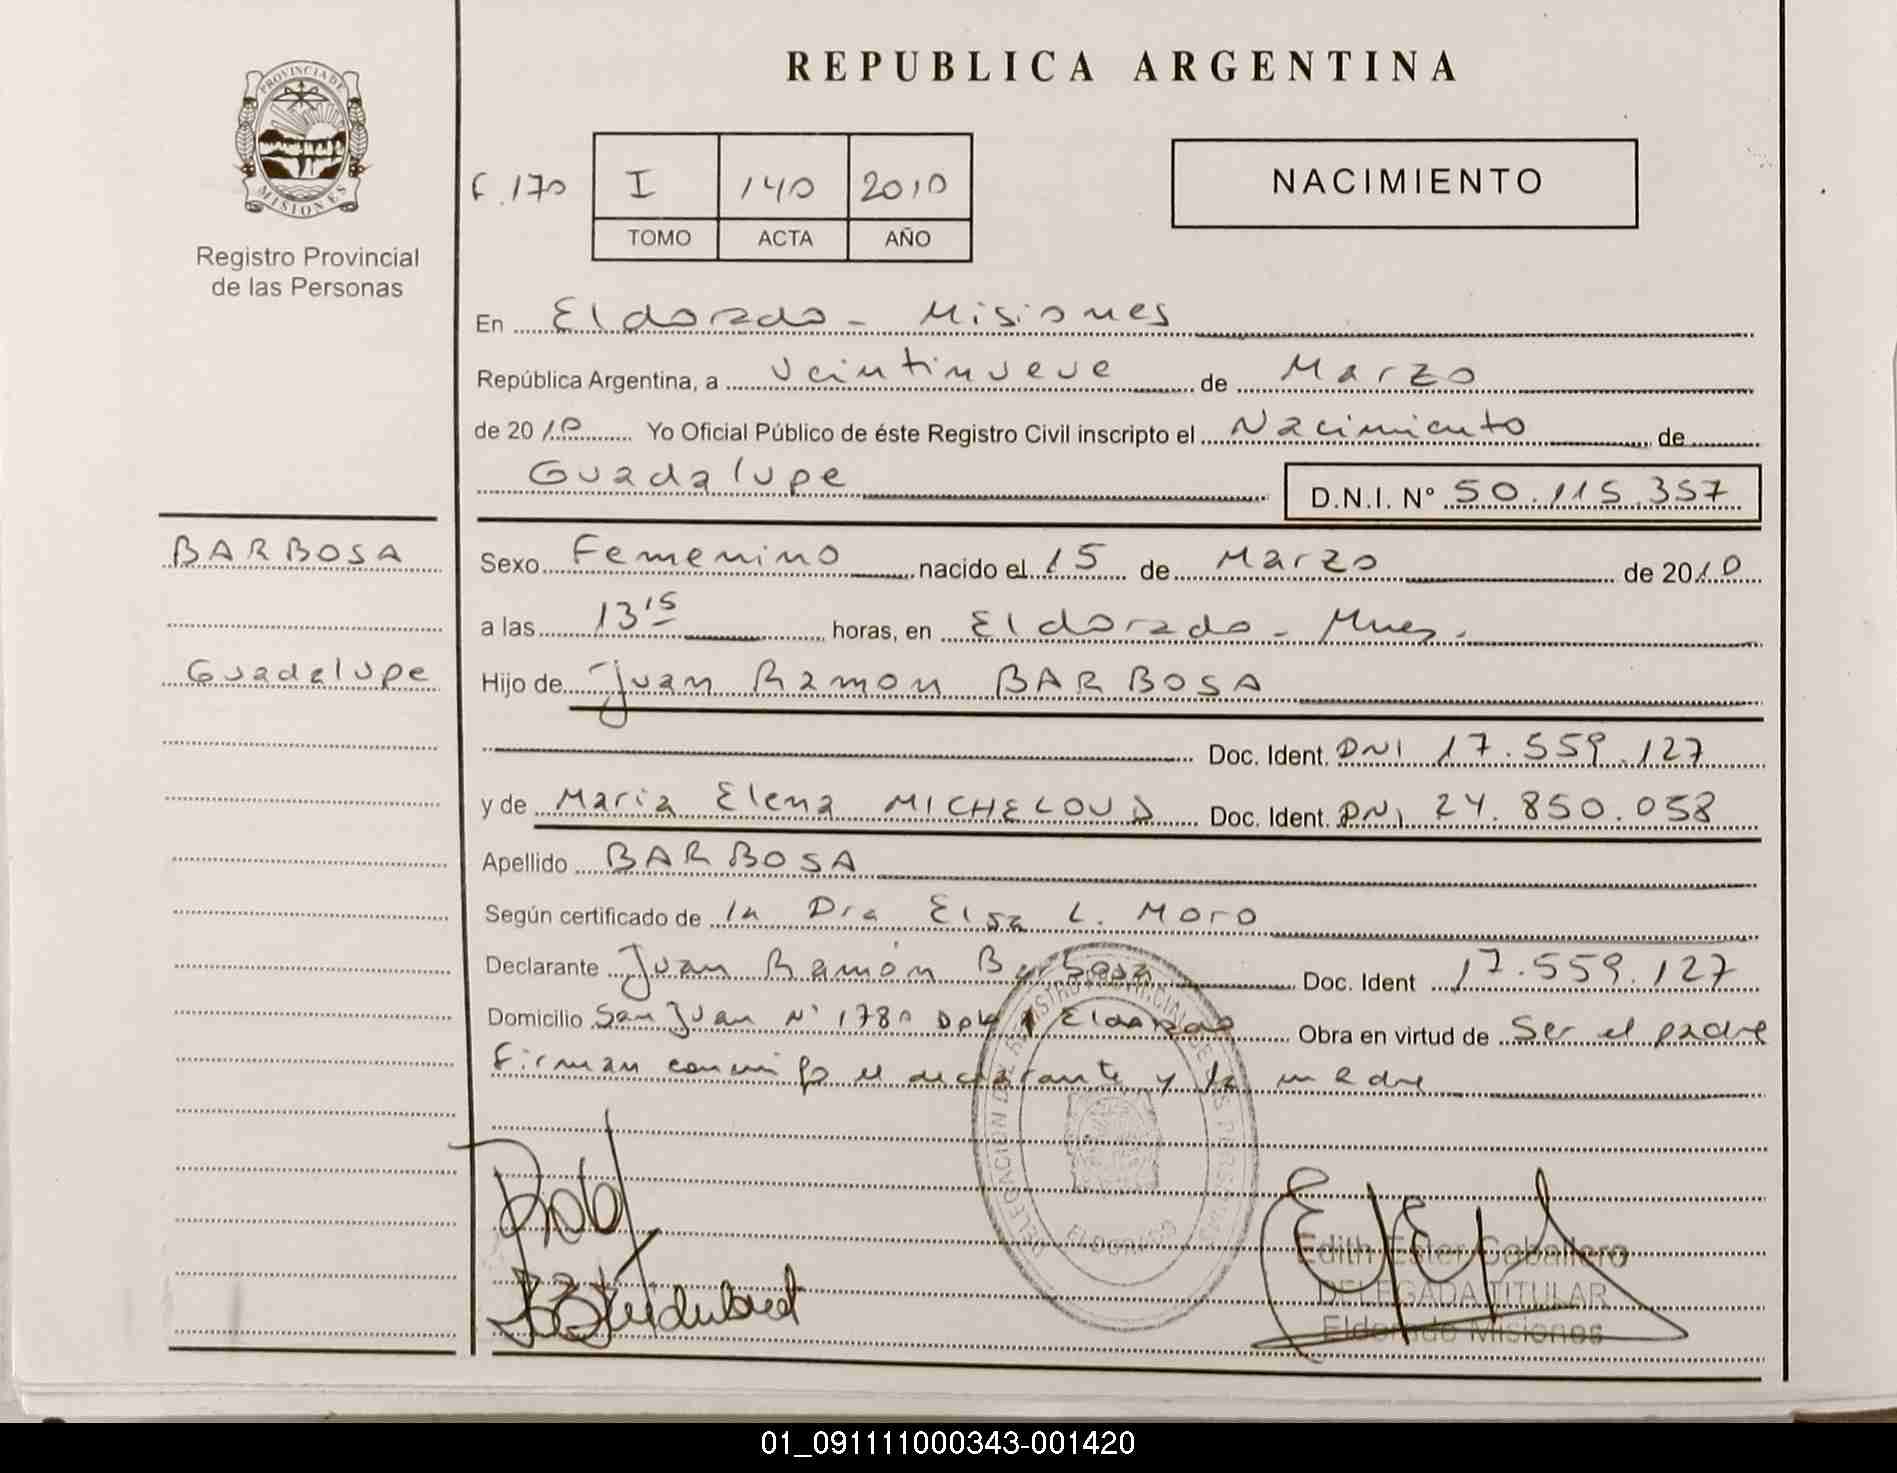 REPUBLICA ARGENTINA
PROVINCIA DE
MISIONES
Registro Provincial
de las Personas
F. 170 I 140 2010
TOMO ACTA AÑO
NACIMIENTO
En Eldorado - Misiones
República Argentina, a veintinueve de Marzo
de 2010 Yo Oficial Público de éste Registro Civil inscripto el Nacimiento de
Guadalupe D.N.I. N° 50.115.357
BARBOSA
Guadalupe
Sexo Femenino nacido el 15 de Marzo de 2010
a las 13 15 horas, en Eldorado - Mnes.
Hijo de Juan Ramon BARBOSA
Doc. Ident. DNI 17.559.127
y de Maria Elena MICHELOUD Doc. Ident. DNI 24.850.058
Apellido BARBOSA
Según certificado de la Dra Elsa L. Moro
Declarante Juan Ramón Barbosa Doc. Ident 17.559.127
Domicilio San Juan N° 1780 Eldorado Obra en virtud de Ser el padre
Firman conmigo el declarante y la madre
DELEGACION DEL REGISTRO PROVINCIAL DE LAS PERSONAS
ELDORADO
Edith Ester Caballero
DELEGADA TITULAR
Eldorado Misiones
01_091111000343-001420